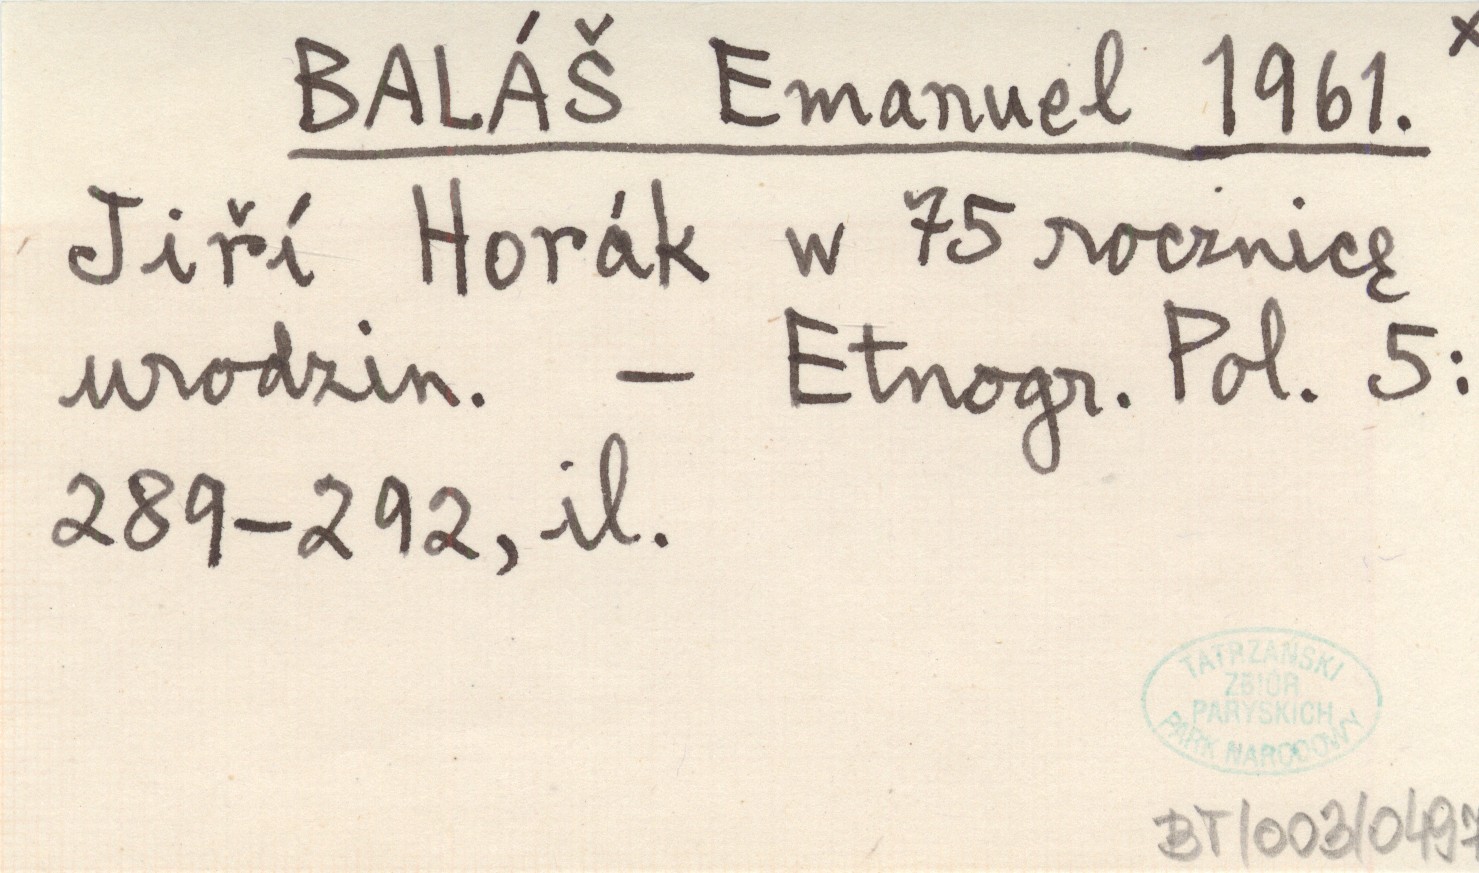 BALÁŠ Emanuel 1961. x
Jiří Horák w 75 rocznicę
urodzin. – Etnogr. Pol. 5:
289–292, il.
TATRZAŃSKI
ZBIÓR
PARYSKICH
PARK NARODOWY
BT/003/0497